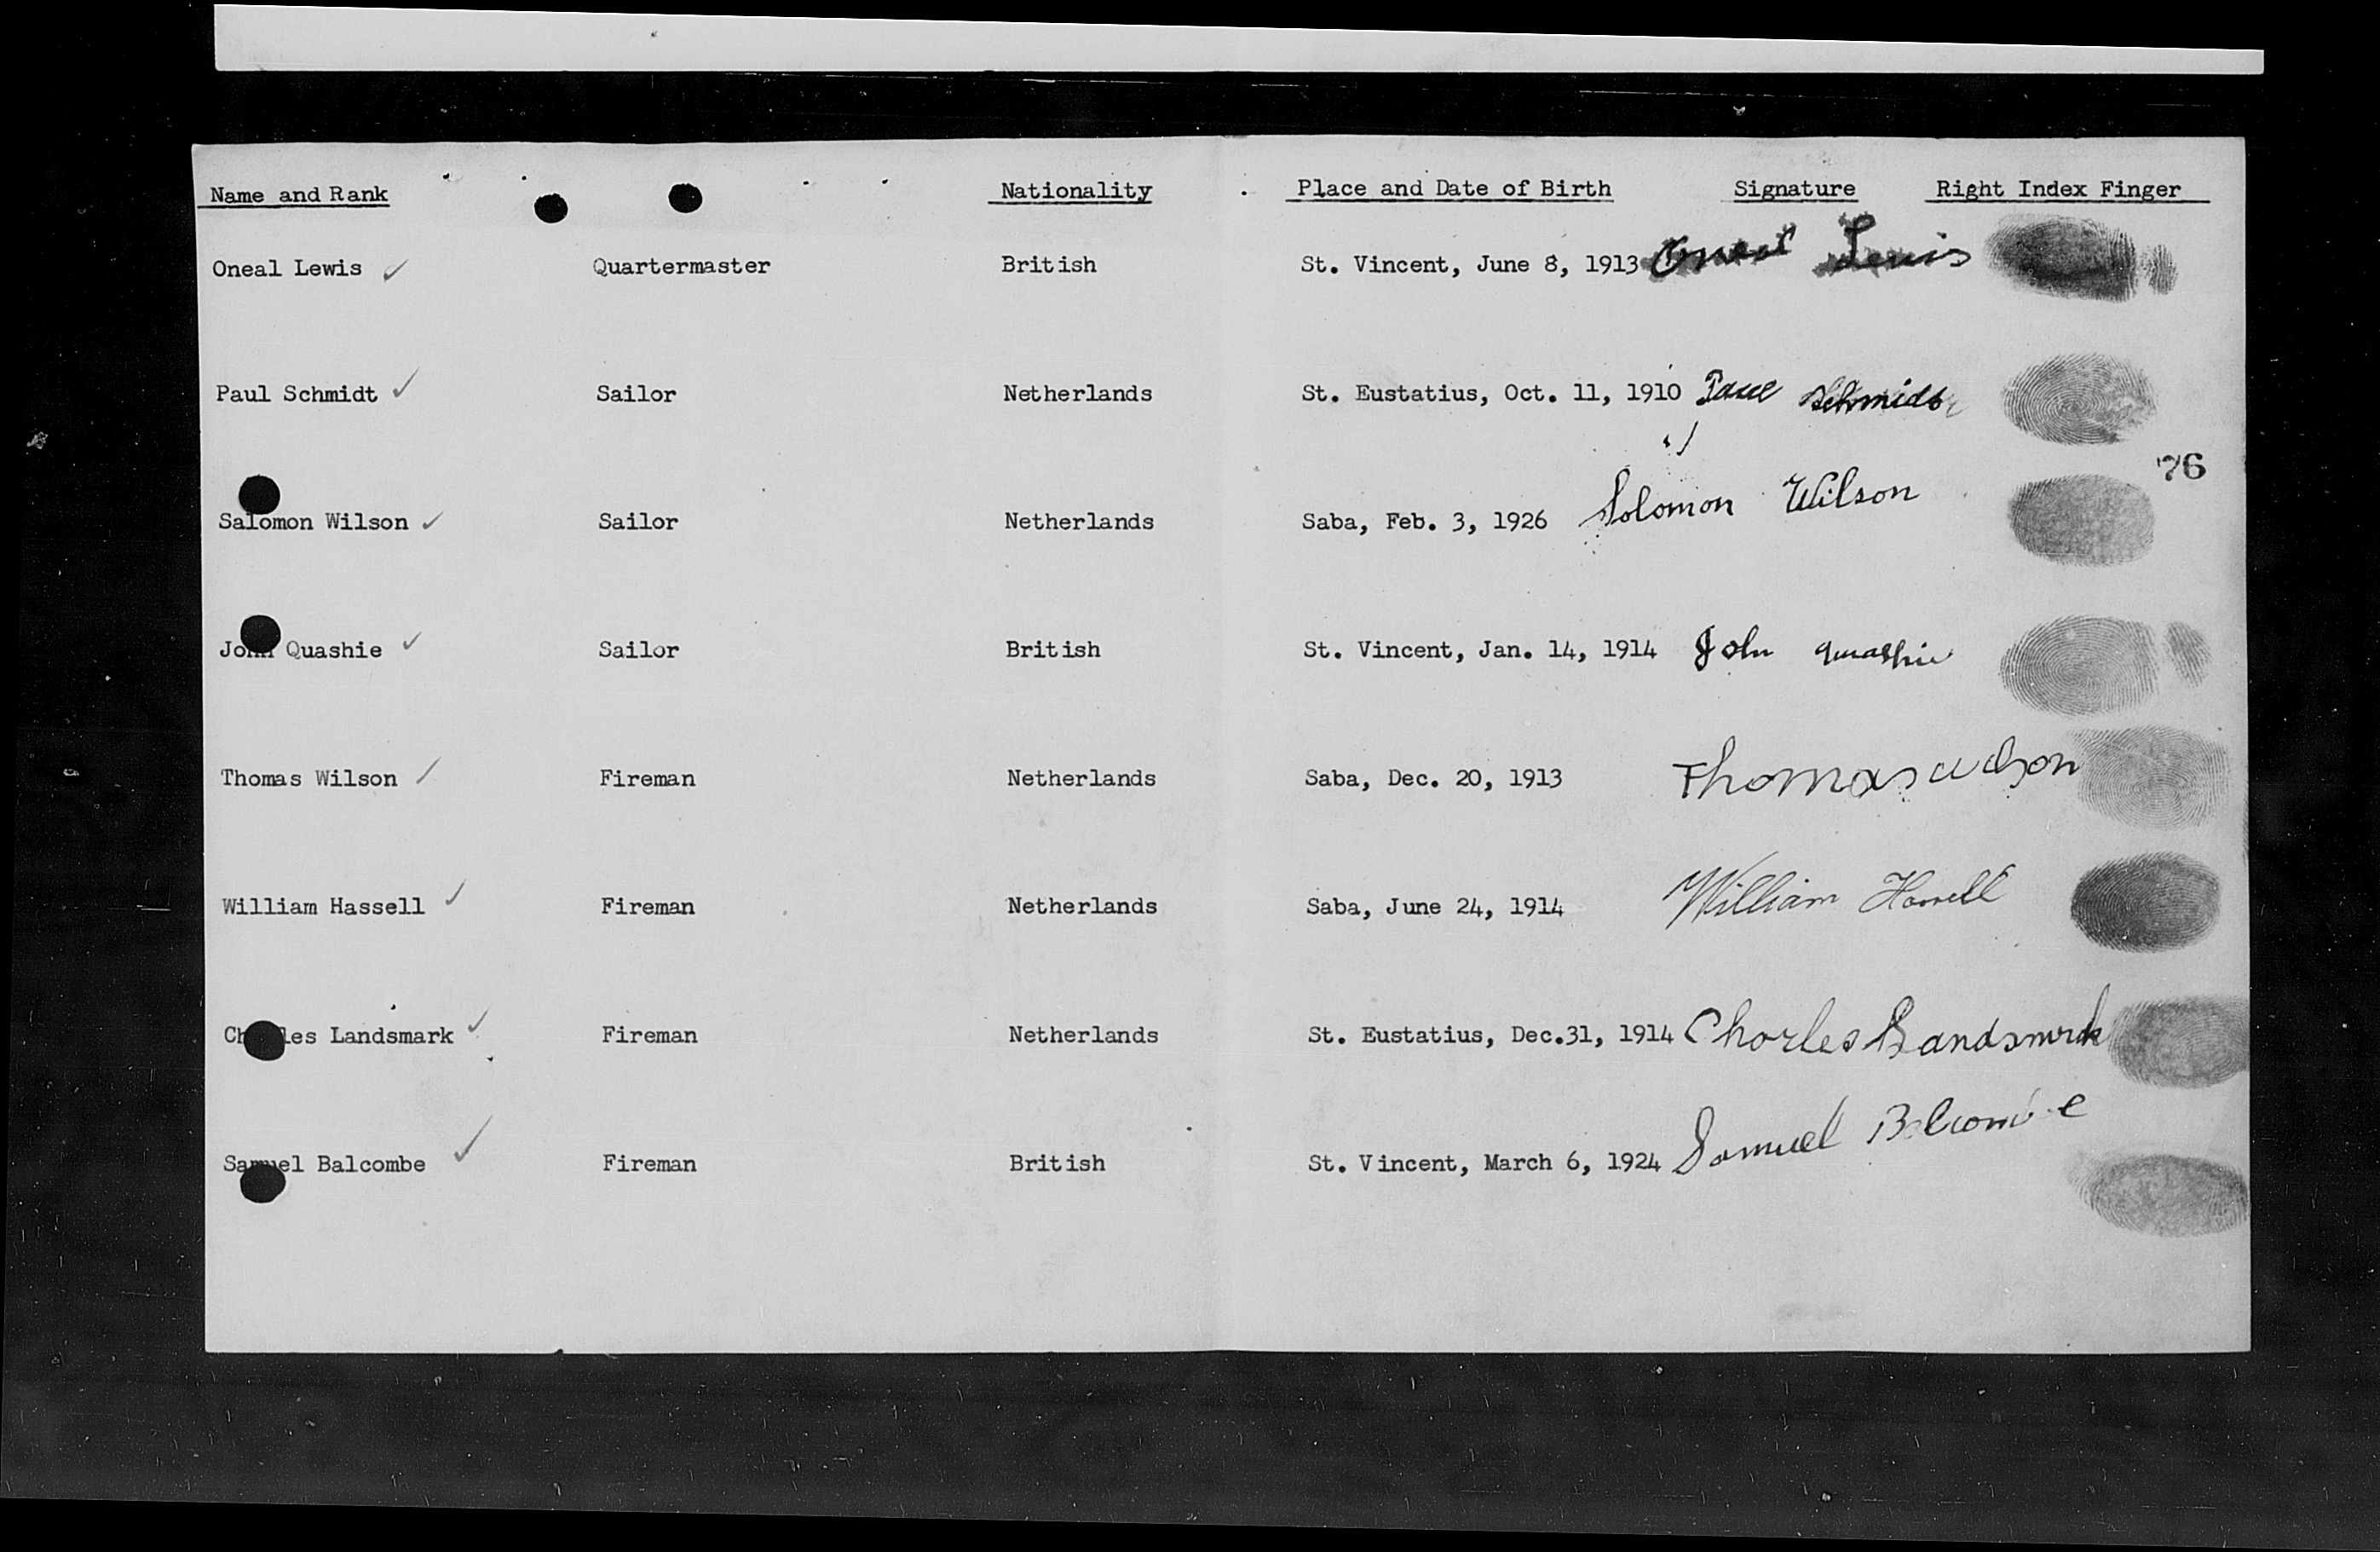 Name and Rank Nationality Place and Date of Birth Signature Right Index Finger
Oneal Lewis Quartermaster British St. Vincent, June 8, 1913 Oneal Lewis
Paul Schmidt Sailor Netherlands St. Eustatius, Oct. 11, 1910 Paul Schmidt
76
Salomon Wilson Sailor Netherlands Saba, Feb. 3, 1926 Solomon Wilson
John Quashie Sailor British St. Vincent, Jan. 14, 1914 John quashie
Thomas Wilson Fireman Netherlands Saba, Dec. 20, 1913 Thomas wilson
William Hassell Fireman Netherlands Saba, June 24, 1914 William Hassell
Charles Landsmark Fireman Netherlands St. Eustatius, Dec.31, 1914 Charles Landsmark
Samuel Balcombe Fireman British St. Vincent, March 6, 1924 Samuel Balcombe